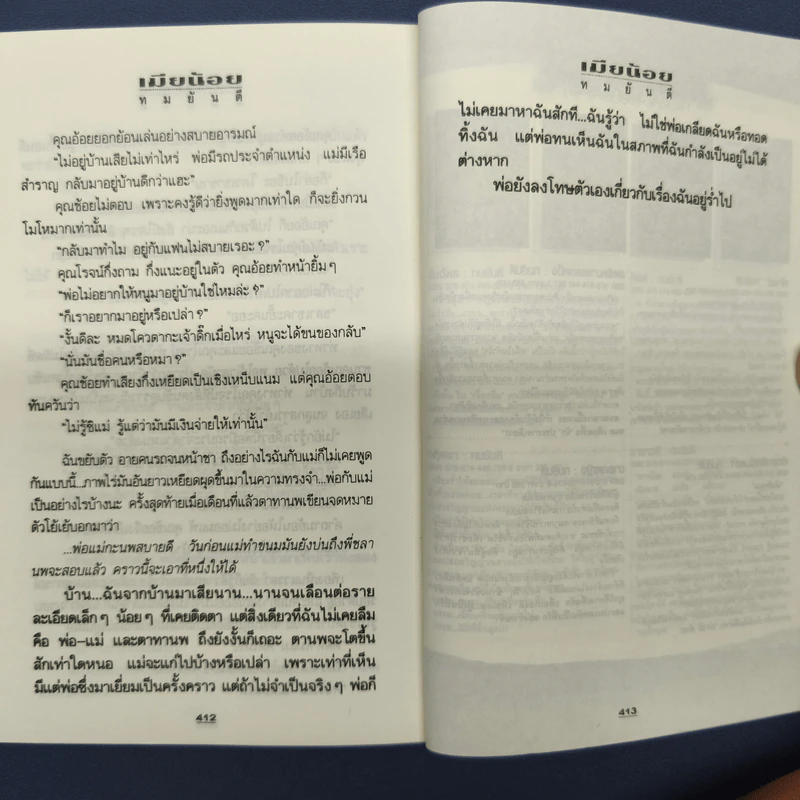 เมียน้อย
ทมยันตี
คุณอ้อยยอกย้อนเล่นอย่างสบายอารมณ์
“ไม่อยู่บ้านเสียไม่เท่าไหร่ พ่อมีรถประจำตำแหน่ง แม่มีเรือ
สำราญ กลับมาอยู่บ้านดีกว่าแฮะ”
คุณช้อยไม่ตอบ เพราะคงรู้ดีว่ายิ่งพูดมากเท่าใด ก็จะยิ่งกวน
โมโหมากเท่านั้น
“กลับมาทำไม อยู่กับแฟนไม่สบายเรอะ?”
คุณโรจน์กึ่งถาม กึ่งแนะอยู่ในตัว คุณอ้อยทำหน้ายิ้มๆ
“พ่อไม่อยากให้หนูมาอยู่บ้านใช่ไหมล่ะ?”
“ก็เราอยากมาอยู่หรือเปล่า?”
“งั้นดีละ หมดโควตากะเจ้าดิ๊กเมื่อไหร่ หนูจะได้ขนของกลับ”
“นั่นมันชื่อคนหรือหมา?”
คุณช้อยทำเสียงกึ่งเหยียดเป็นเชิงเหน็บแนม แต่คุณอ้อยตอบ
ทันควันว่า
“ไม่รู้ซิแม่ รู้แต่ว่ามันมีเงินจ่ายให้เท่านั้น”
ฉันขยับตัว อายคนรถจนหน้าชา ถึงอย่างไรฉันกับแม่ก็ไม่เคยพูด
กันแบบนี้...ภาพไร่มันอันยาวเหยียดผุดขึ้นมาในความทรงจำ...พ่อกับแม่
เป็นอย่างไรบ้างนะ ครั้งสุดท้ายเมื่อเดือนที่แล้วตาทานพเขียนจดหมาย
ตัวโย้เย้บอกมาว่า
...พ่อแม่กะนพสบายดี วันก่อนแม่ทำขนมมันยังบ่นถึงพี่ชลา
นพจะสอบแล้ว คราวนี้จะเอาที่หนึ่งให้ได้
บ้าน...ฉันจากบ้านมาเสียนาน...นานจนเลือนต่อราย
ละเอียดเล็กๆ น้อยๆ ที่เคยติดตา แต่สิ่งเดียวที่ฉันไม่เคยลืม
คือ พ่อ–แม่ และตาทานพ ถึงยังงั้นก็เถอะ ตานพจะโตขึ้น
สักเท่าใดหนอ แม่จะแก่ไปบ้างหรือเปล่า เพราะเท่าที่เห็น
มีแต่พ่อซึ่งมาเยี่ยมเป็นครั้งคราว แต่ถ้าไม่จำเป็นจริงๆ พ่อก็
412
เมียน้อย
ทมยันตี
ไม่เคยมาหาฉันสักที...ฉันรู้ว่า ไม่ใช่พ่อเกลียดฉันหรือทอด
ทิ้งฉัน แต่พ่อทนเห็นฉันในสภาพที่ฉันกำลังเป็นอยู่ไม่ได้
ต่างหาก
พ่อยังลงโทษตัวเองเกี่ยวกับเรื่องฉันอยู่ร่ำไป
413